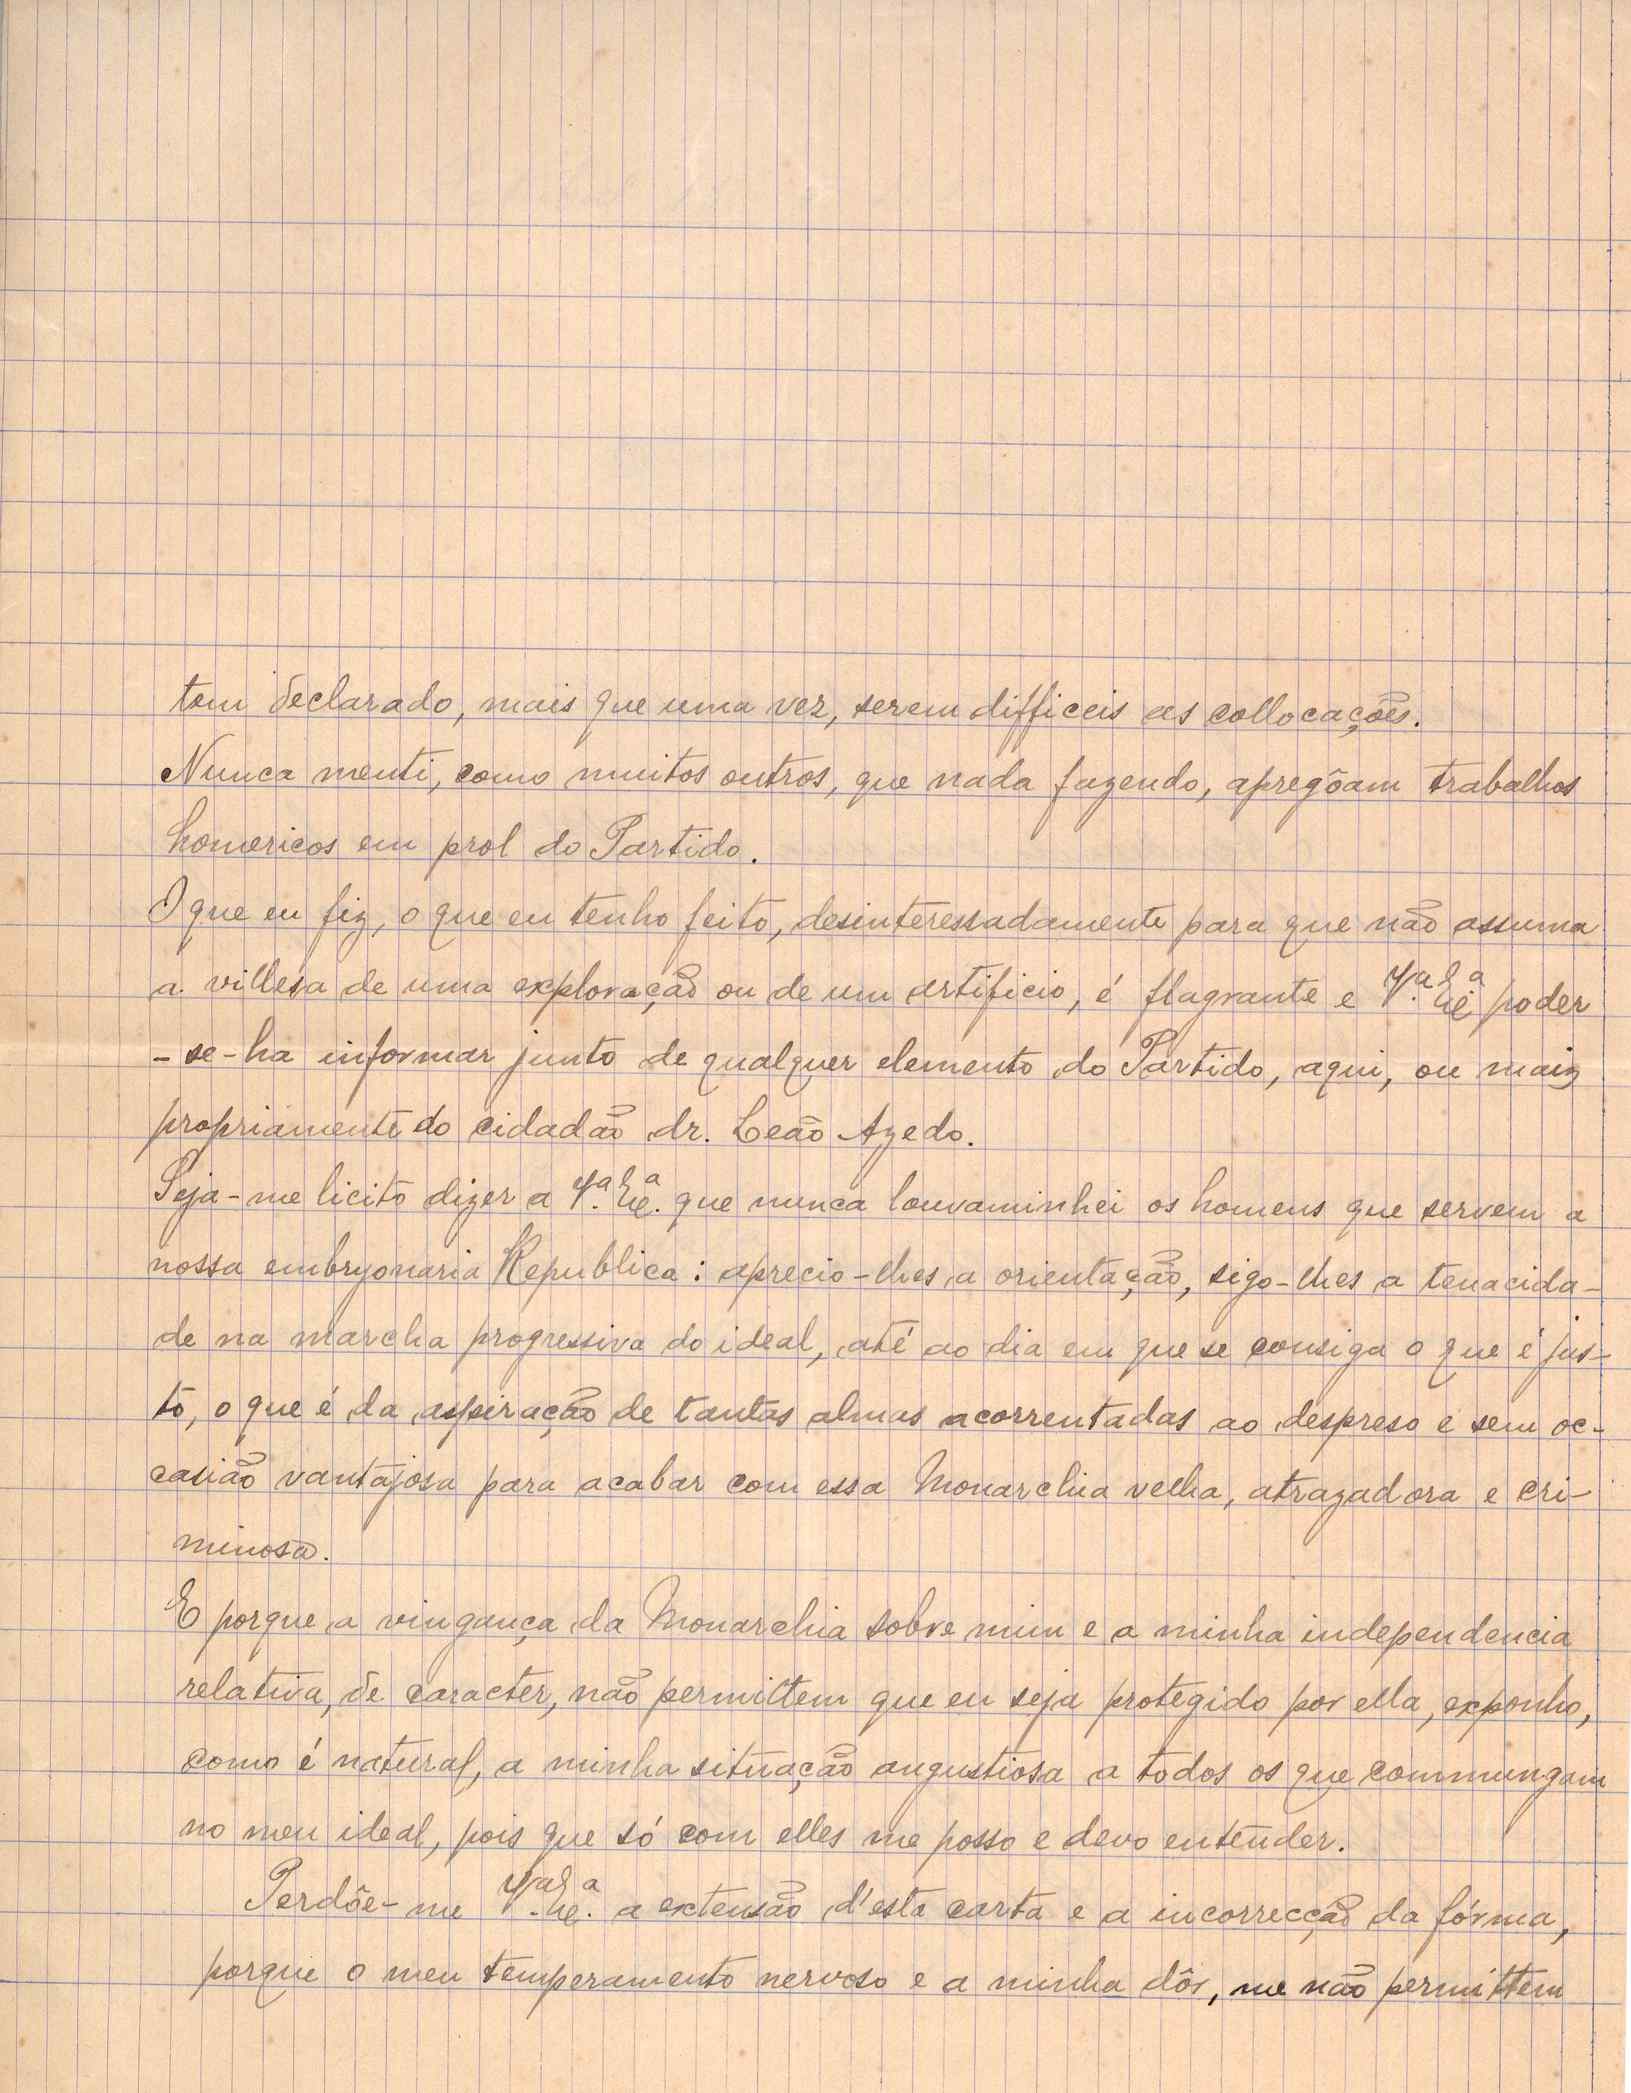 tem declarado, mais que uma vez, serem difficeis as collocações.
Nunca menti, como muitos outros, que nada fazendo, apregôam trabalhos
homericos em prol do Partido.
O que eu fiz, o que eu tenho feito, desinteressadamente para que não assuma
a villesa de uma exploração ou de um artificio, é flagrante e V.ª Ex.ª poder
-se-ha informar junto de qualquer elemento do Partido, aqui, ou mais
propriamente do cidadão dr. Leão Azedo.
Seja-me licito dizer a V.ª Ex.ª que nunca louvaminhei os homens que servem a
nossa embryonaria Republica: aprecio-lhes a orientação, sigo-lhes a tenacida-
de na marcha progressiva do ideal, até ao dia em que se consiga o que é jus-
to, o que é da aspiração de tantas almas acorrentadas ao despreso e sem oc-
casião vantajosa para acabar com essa Monarchia velha, atrazadora e cri-
minosa.
E porque a vingança da Monarchia sobre mim e a minha independencia
relativa, de caracter, não permittem que eu seja protegido por ella, exponho,
como é natural, a minha situação angustiosa a todos os que commungam
no meu ideal, pois que só com elles me posso e devo entender.
Perdôe-me V.ª Ex.ª a extensão d'esta carta e a incorrecção da fórma,
porque o meu temperamento nervoso e a minha dôr, me não permittem